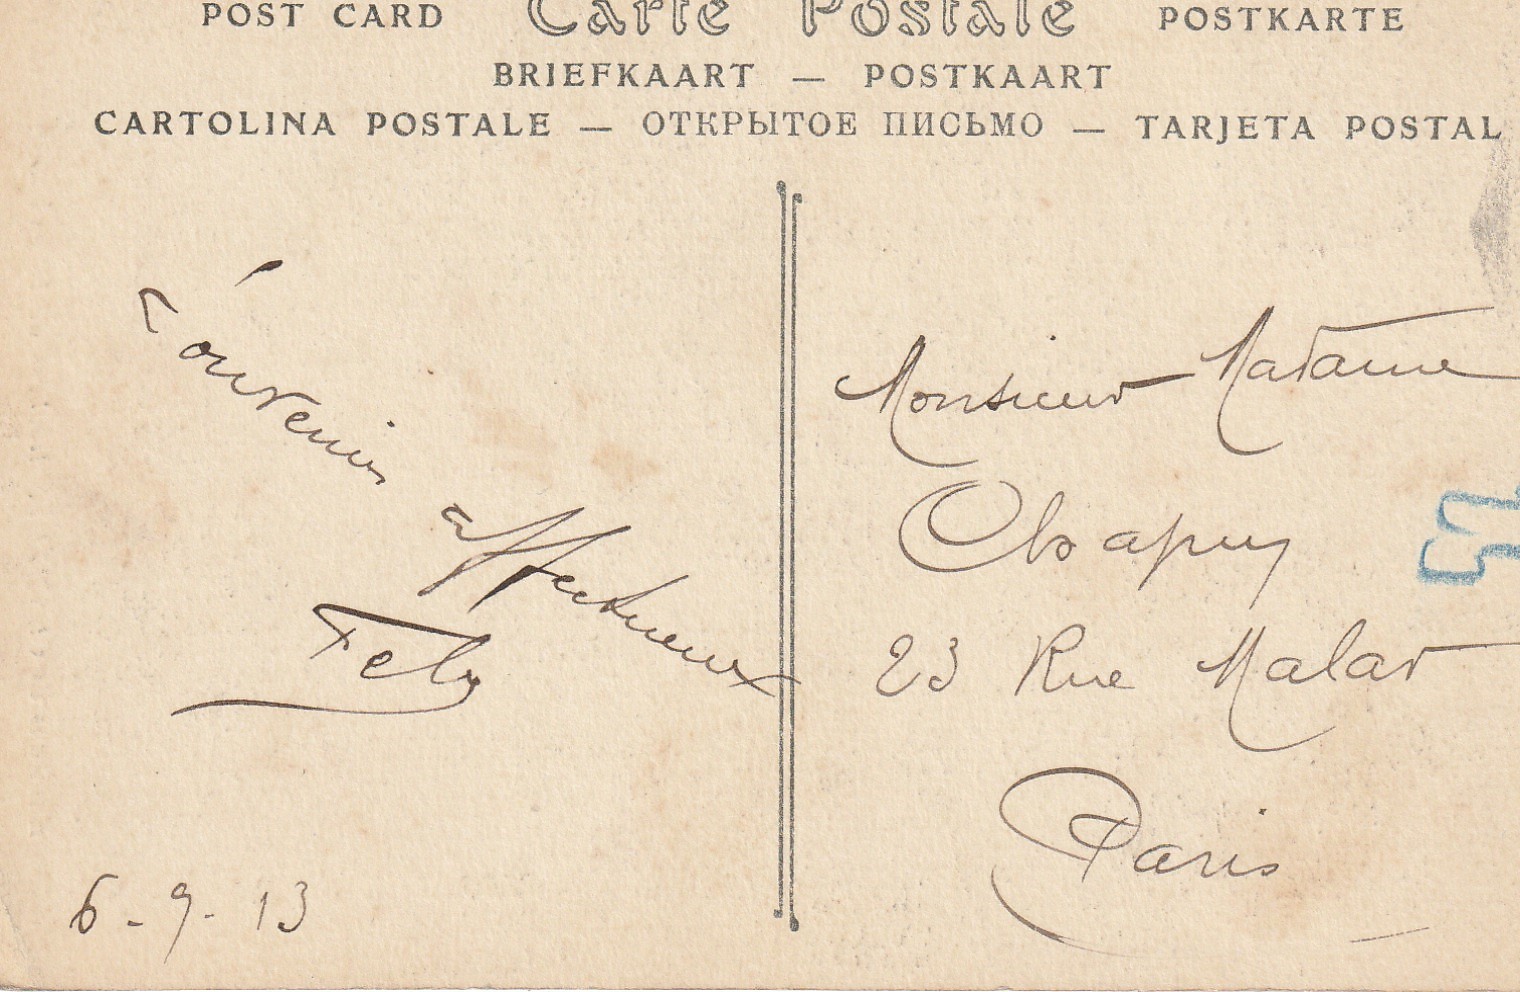 POST CARD Carte Postale POSTKARTE
BRIEFKAART — POSTKAART
CARTOLINA POSTALE — ОТКРЫТОЕ ПИСЬМО — TARJETA POSTAL
Souvenir
affectueux
Fely
6-9-13
Monsieur Madame
Chapuy
23 Rue Malar
Paris
52